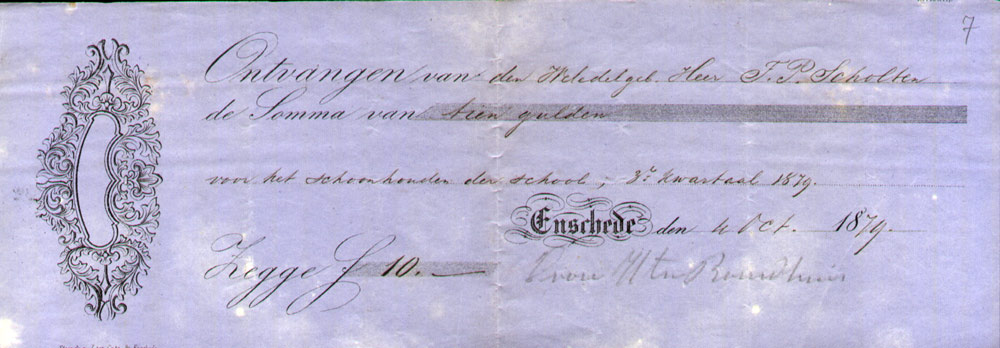 7
Ontvangen van den Weledelgeb. Heer T. P. Scholten
de Somma van tien gulden
voor het schoonhouden der school, 3e kwartaal 1879.
Enschede den 4 Oct. 1879.
Zegge ƒ 10.—